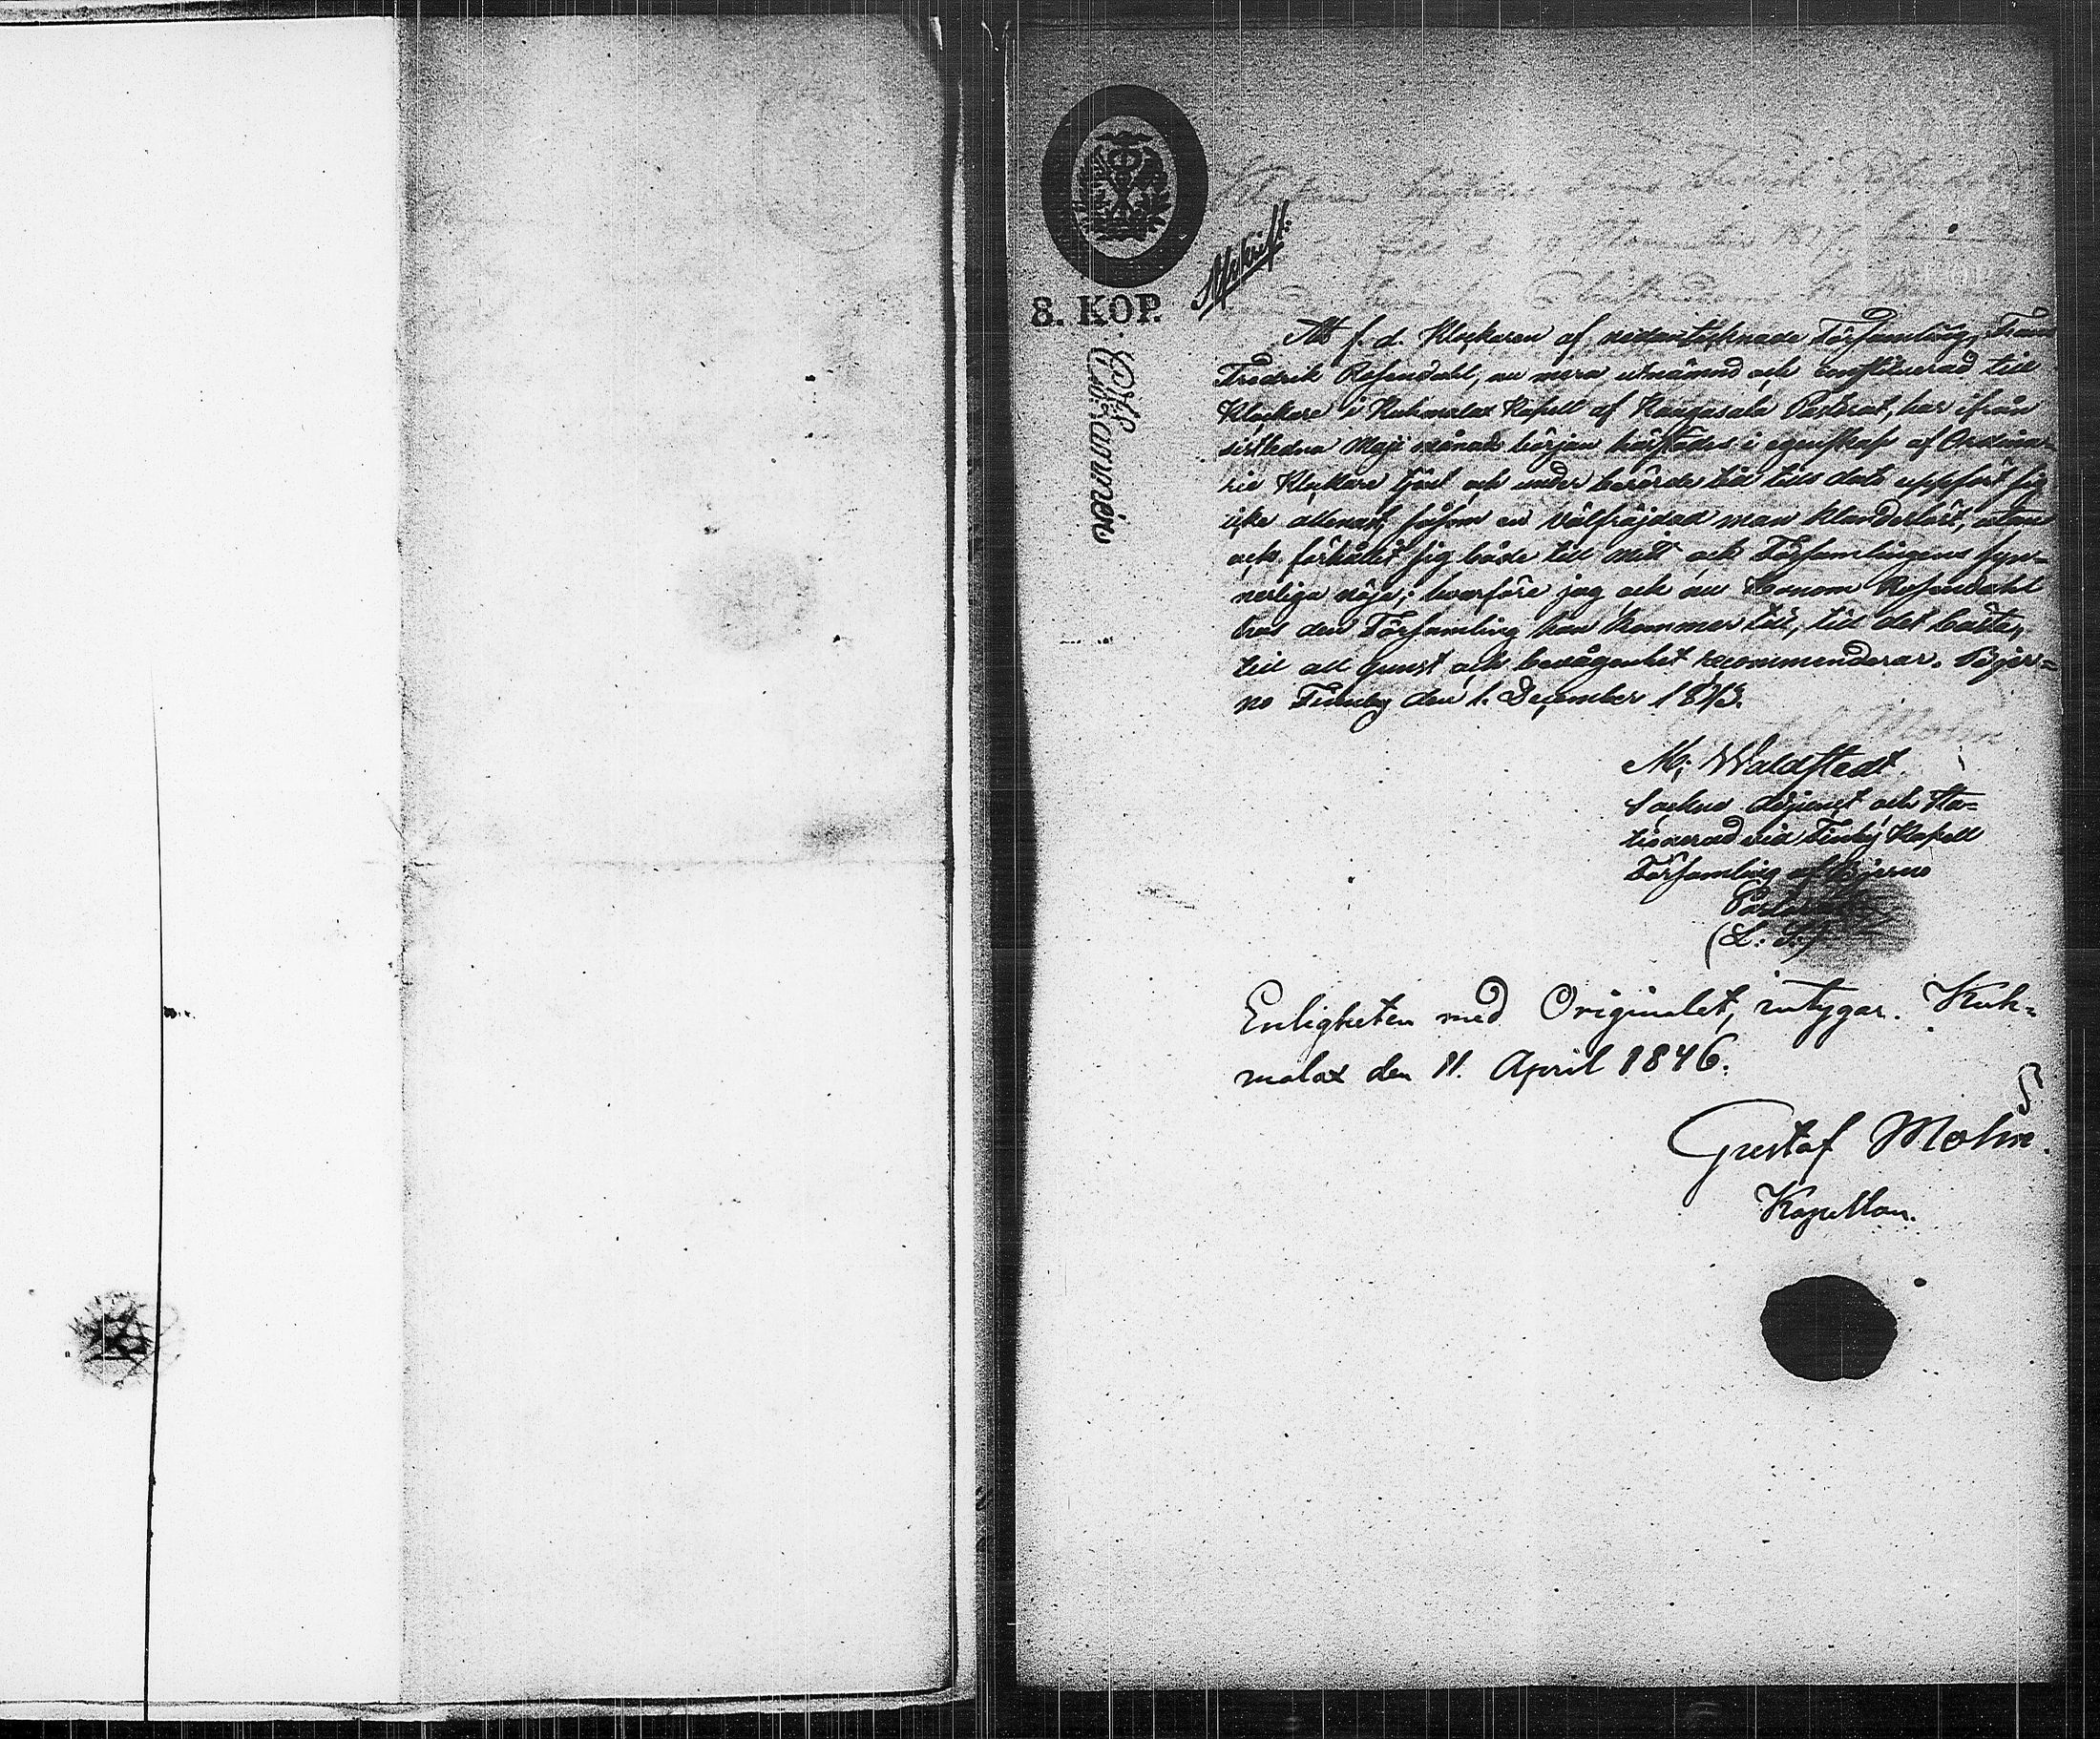 8. KOP.
Afskrift.
Att f. d. Klockaren af nedantecknade Församling, Frans
Fredrik Rosendahl, nu mera utnämnd och constituerad till
Klockare i Kuhmalax Kapell af Kangasala Pastorat, har ifrån
sistledne Maji månads början härstädes i egenskap af Ordina-
rie Klockare tjent och under berörde tid till dato uppfört sig
icke allenast såsom en välfrejdad man klanderlöst, utan
ock förhållit sig både till mitt och Församlingens syn-
nerliga nöje; hvarföre jag ock nu honom Rosendahl
hos den Församling han kommer till, till det bästa,
till all gunst och bevågenhet recommenderar. Bjer-
no Finby den 1. December 1843.
M: Waldstedt
Sockne Adjunct och Sta-
tionerad vid Finby Kapell
Församling af Bjerno
(L. S.)
Enligheten med Originalet, intygar. Kuh-
malax den 11. April 1846.
Gustaf Molin.
Kapellan.